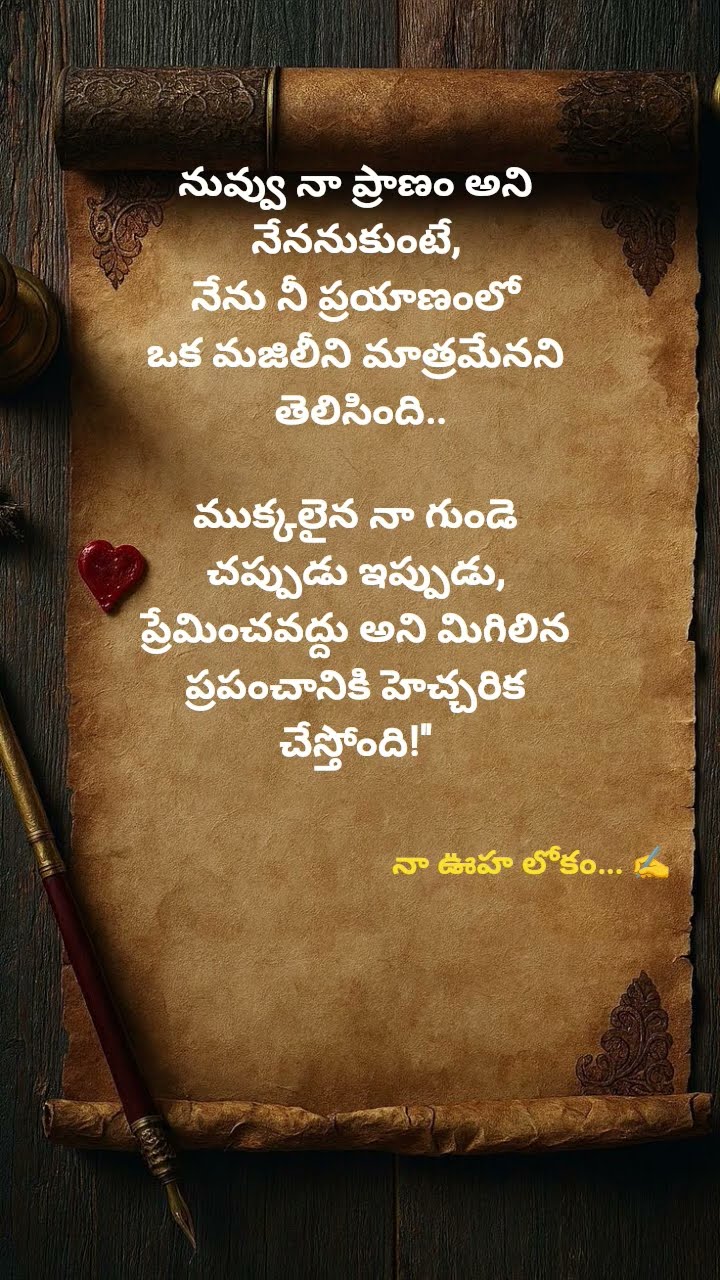 నువ్వు నా ప్రాణం అని
నేననుకుంటే,
నేను నీ ప్రయాణంలో
ఒక మజిలీని మాత్రమేనని
తెలిసింది..
ముక్కలైన నా గుండె
చప్పుడు ఇప్పుడు,
ప్రేమించవద్దు అని మిగిలిన
ప్రపంచానికి హెచ్చరిక
చేస్తోంది!"
నా ఊహ లోకం... ✍️